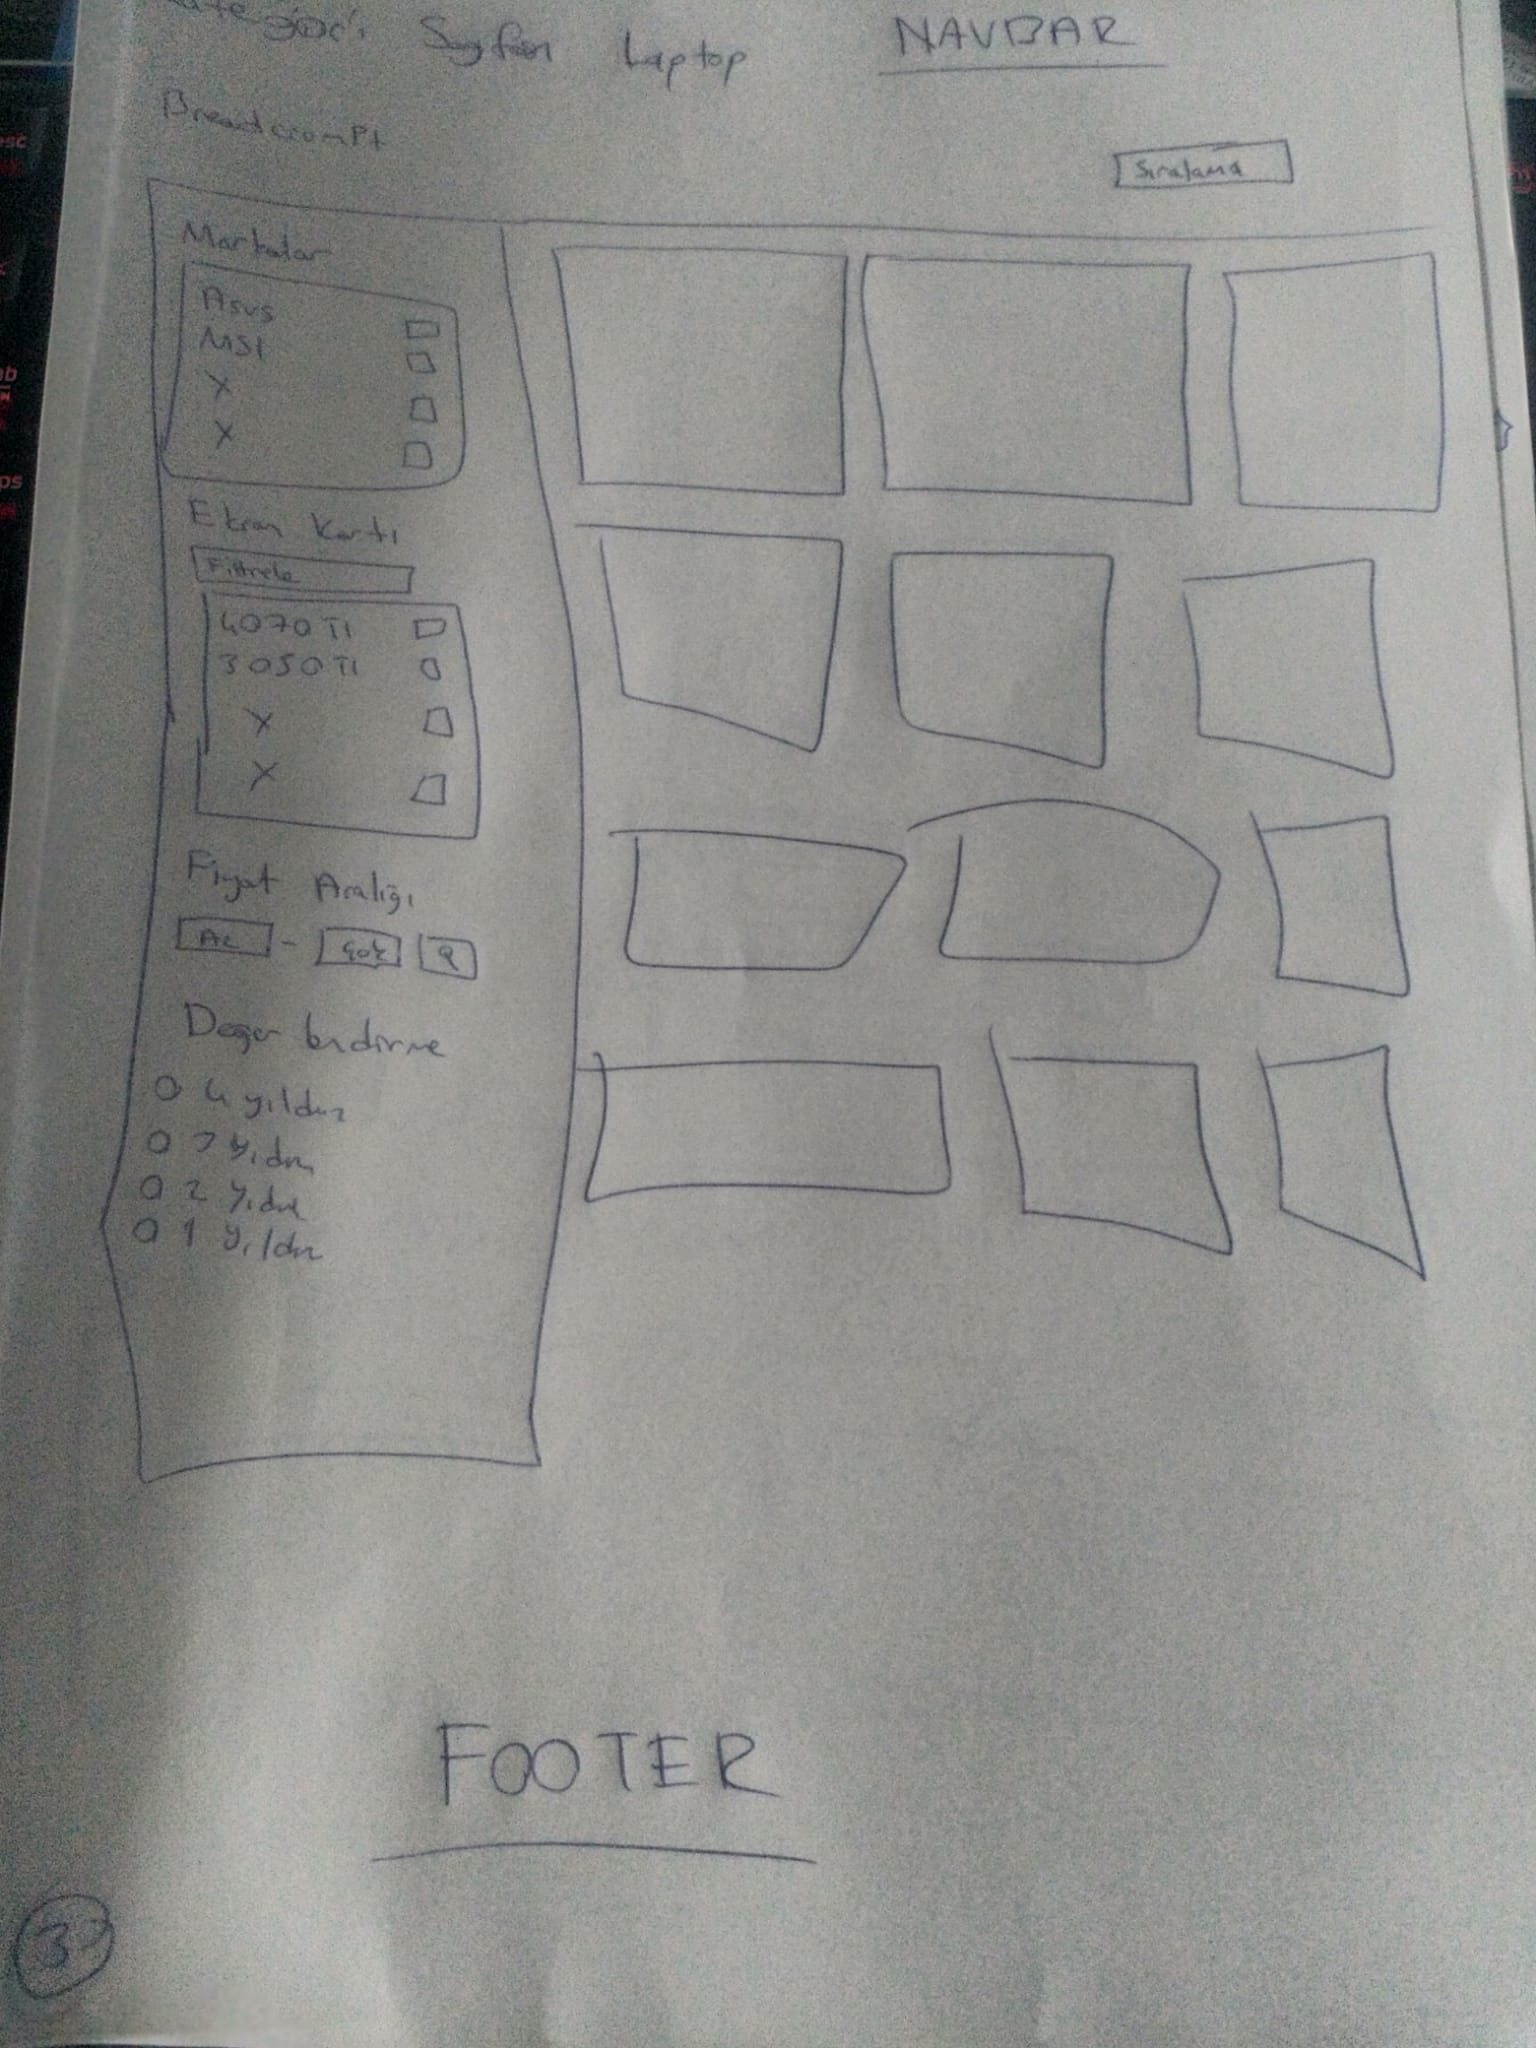 Laptop NAVBAR
Breadcrompt
Sıralama
Markalar
Asus
MSI
X
X
Ekran Kartı
Filtrele
4070 TI
3050 TI
X
X
Fiyat Aralığı
Az - çok
Değerlendirme
4 yıldız
3 yıldız
2 yıldız
1 yıldız
FOOTER
3